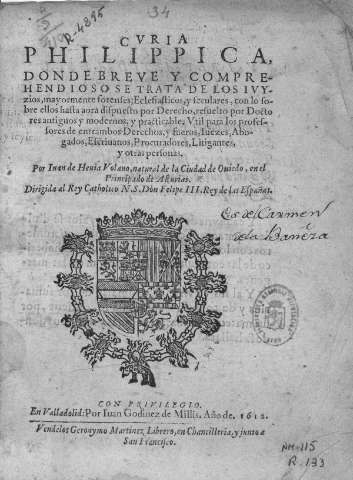 34
R-4895
CVRIA
PHILIPPICA,
DONDE BREVE Y COMPRE-
HENDIOSO SE TRATA DE LOS IVY-
zios, mayormente forenses; Eclesiasticos, y seculares, con lo so-
bre ellos hasta aora dispuesto por Derecho, resuelto por Docto
res antiguos y modernos, y practicable. Vtil para los profes-
sores de entrambos Derechos, y fueros, Iuezes, Abo-
gados, Escriuanos, Procuradores, Litigantes,
y otras personas.
Por Iuan de Heuia Volano, natural de la Ciudad de Ouiedo, en el
Principado de Asturias.
Dirigida al Rey Catholico N.S. Don Felipe III. Rey de las Españas.
Es de Carmen
de la Bañeza
CON PRIVILEGIO.
En Valladolid: Por Iuan Godinez de Millis. Año de. 1612.
Vendelos Geronymo Martinez, Librero, en Chancilleria, y junto a
San Francisco.
R-133